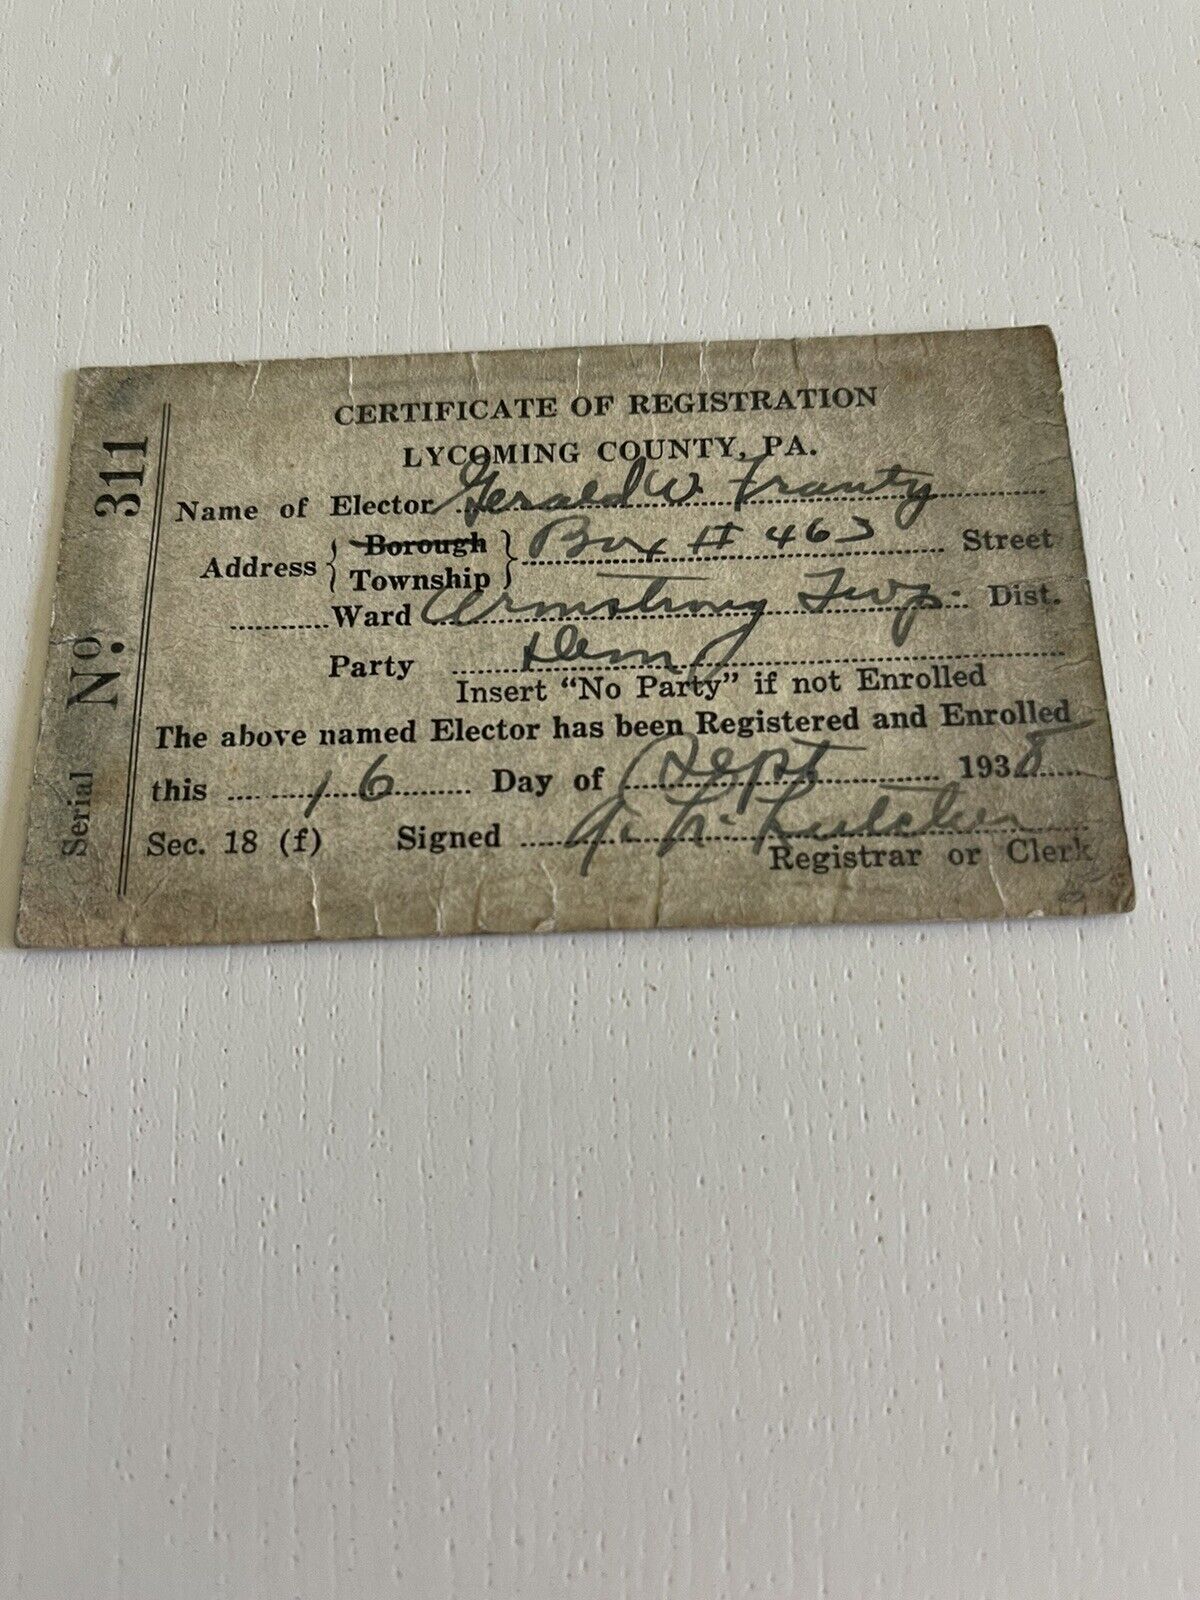 Serial No. 311
CERTIFICATE OF REGISTRATION
LYCOMING COUNTY, PA.
Name of Elector Gerald W. Franty
Address { Borough } Box # 463 Street
{ Township }
Ward Armstrong Twp. Dist.
Party Dem
Insert "No Party" if not Enrolled
The above named Elector has been Registered and Enrolled
this 16 Day of Sept 1938
Sec. 18 (f) Signed
Registrar or Clerk